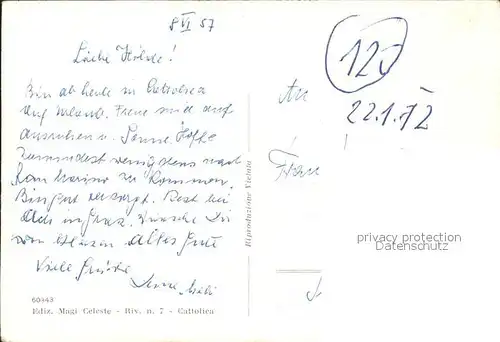 8 VI 57
Liebe Hilde!
Bin ab heute in Cattolica
auf Urlaub. Freue mich auf
ausruhen u. Sonne. Hoffe
zumindest wenigstens nach
San Marino zu kommen.
Bin gut versorgt.
Dich in Graz. Wünsche Dir
von Herzen Alles Gute
Viele Grüße
60443
Ediz. Magi Celeste - Riv. n. 7 - Cattolica
Riproduzione Vietata
120
An
22.1.72
Frau
privacy protection
watermark